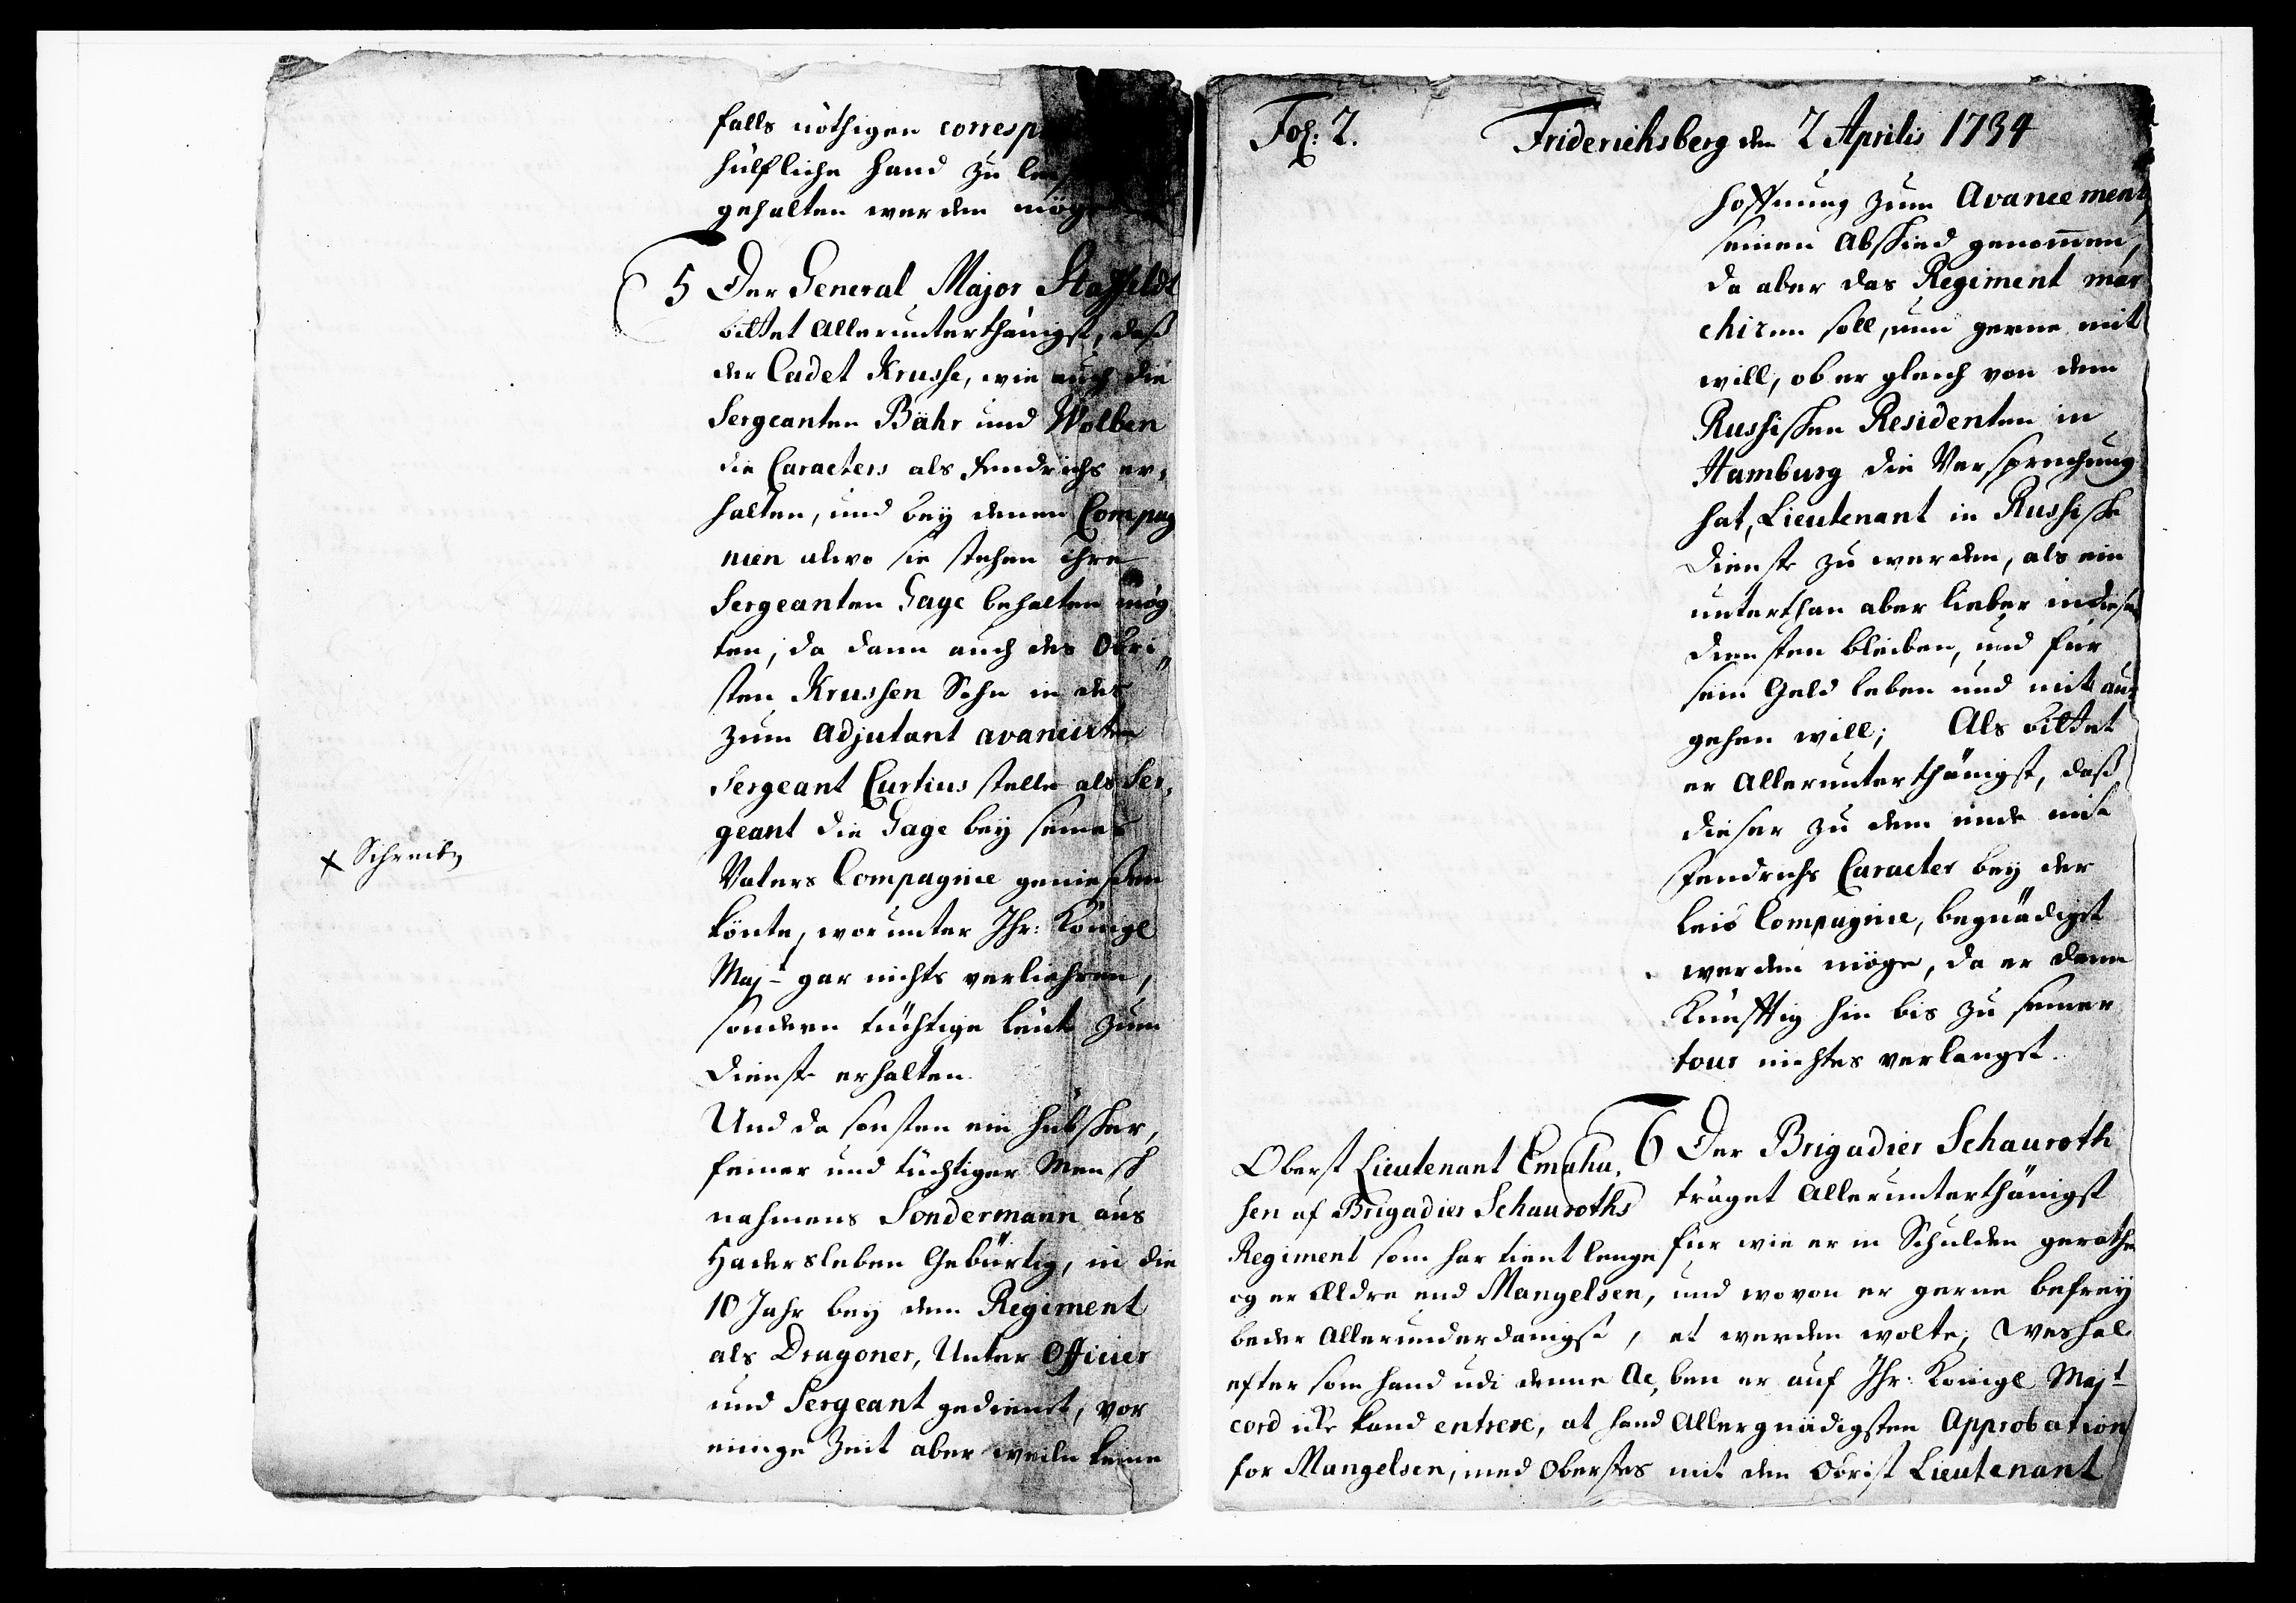 falls nöthigen corresp
hülfliche hand zu
gehalten werden möge
5 Der General Major Staffeldt
bittet Allerunterthänigst, daß
der Cadet Krusse, wie auch die
Sergeanten Bähr und Wolben
die Caracters als Fendrichs er,
halten, und bey denen Compag
nien alwo sie stehen ihre
Sergeanten Gage behalten mög
ten, da dann auch des Obri„
sten Krussen Sohn in des
zum Adjutant avancirten
Sergeant Curtius stelle als Ser,
geant die Gage bey seines
Vaters Compagnie geniessen
könte, worunter Ihr: Königl
Majt gar nichts verliehren,
sondern tüchtige leute zum
Dienste erhalten.
Und da sonsten ein hübscher,
feiner und tüchtiger Mensch
nahmens Sondermann aus
Hadersleben Gebürtig, in die
10 Jahr bey dem Regiment
als Dragoner, Unter Officier
und Sergeant gedienet, vor
einige Zeit aber weiln keine
x Schreib
Fol: 2. Friderichsberg den 2 Aprilis 1734
hoffnung zum Avancement,
seinen Abschied genommen,
da aber das Regiment mar
chiren soll, nun gerne mit
will, ob er gleich von dem
Russischen Residenten in
Hamburg die Versprechung
hat, Lieutenant in Russische
Dienste zu werden, als ein
unterthan aber lieber in diesen
diensten bleiben, und für
sein Geld leben und mit aus
gehen will; Als bittet
er Allerunterthänigst, daß
dieser zu dem ende mit
Fendrichs Caracter bey der
leib Compagnie, begnädiget
werden möge, da er dann
Künfftig hin bis zu seiner
tour nichtes verlanget.
6 Der Brigadier Schauroth
träget Allerunterthänigst
für wie er in Schulden gerathen
und wovon er gerne befrey
et werden wolte, weshal
ben er auf Ihr: Königl Majt
Allergnädigsten Approbation
mit den Obrist Lieutenant
Oberst Lieutenant Emahu,
sen af Brigadier Schauroths
Regiment som har tient lenge
og er Ældre end Mangelsen,
beder Allerunderdanigst,
efter som hand udi denne Ac,
cord icke kand entrere, at hand
for Mangelsen, med Oberstes